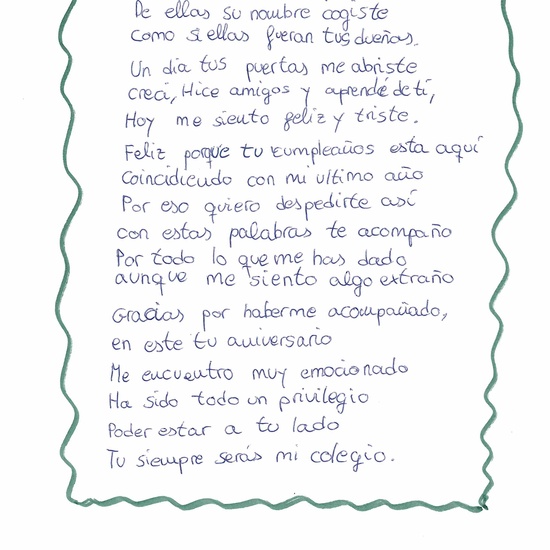 De ellas su nombre cogiste
como si ellas fueran tus dueñas.
Un día tus puertas me abriste
crecí, Hice amigos y aprendé de tí,
Hoy me siento feliz y triste.
Feliz porque tu cumpleaños esta aquí
Coincidiendo con mi ultimo año
Por eso quiero despedirte así
con estas palabras te acompaño
Por todo lo que me has dado
aunque me siento algo extraño
Gracias por haberme acompañado,
en este tu aniversario
Me encuentro muy emocionado
Ha sido todo un privilegio
Poder estar a tu lado
Tu siempre serás mi colegio.